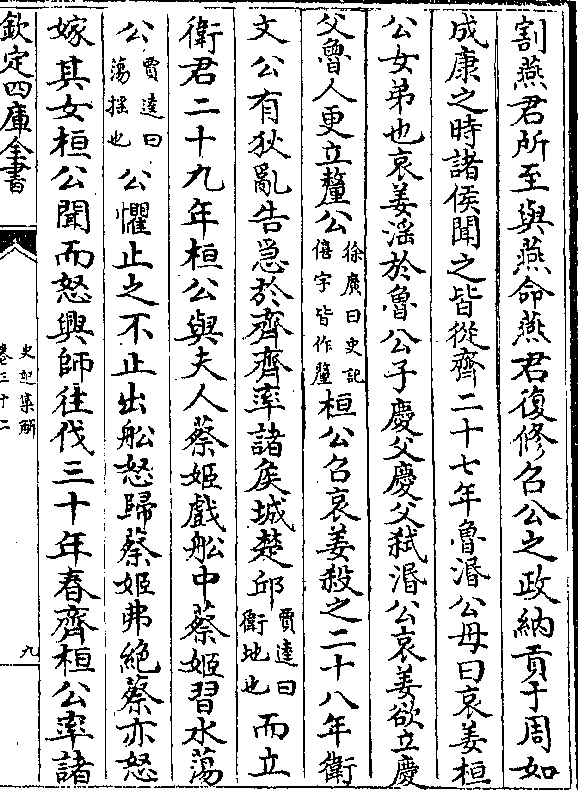 割燕君所至與燕命燕君復修召公之政納貢于周如
成康之時諸侯聞之皆從齊二十七年魯湣公母曰哀姜桓
公女弟也哀姜淫於魯公子慶父慶父弒湣公哀姜欲立慶
父魯人更立釐公徐廣曰史記僖字皆作釐桓公召哀姜殺之二十八年衛
文公有狄亂告急於齊齊率諸侯城楚邱賈逵曰衛地也而立
衛君二十九年桓公與夫人蔡姬戲船中蔡姬習水蕩
公賈逵曰蕩搖也公懼止之不止出船怒歸蔡姬弗絶蔡亦怒
嫁其女桓公聞而怒興師往伐三十年春齊桓公率諸
欽定四庫全書
史記集解
卷三十二
九